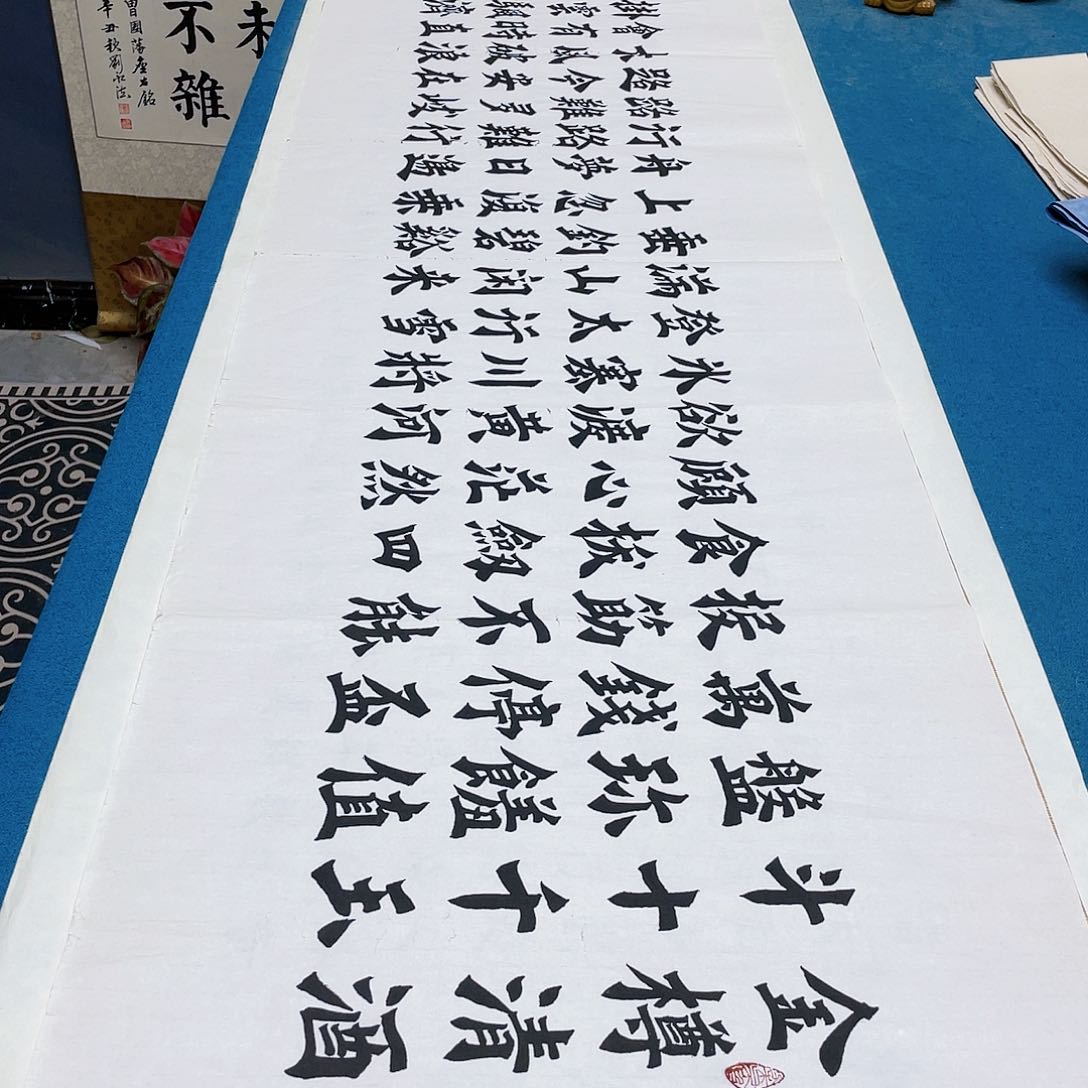 金樽清酒
斗十千玉
盤珍饈值
萬錢停盃
投筯不能
食拔劔四
顧心茫然
欲渡黃河
氷塞川將
登太行雪
滿山閑来
垂釣碧谿
上忽復乘
舟夢日邊
行路難行
路難多歧
路今安在
長風破浪
會有時直
掛雲帆濟
未
不雜
曾國藩座右銘